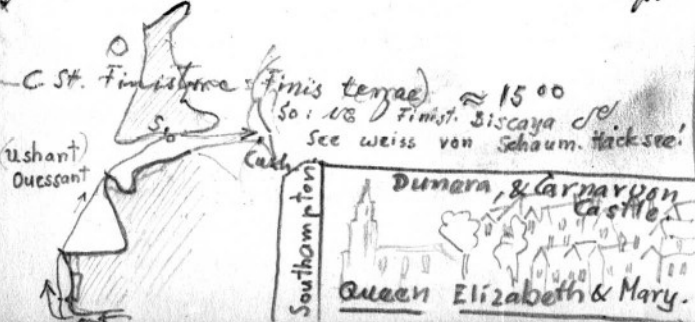 C. St. Finisterre (Finis terrae) ≈ 15 00
So: NE Finist. Biscaya
See weiss von Schaum. Hacksee!
So
Cuxh
(Ushant)
Ouessant
Southampton
Dumara, & Carnarvon
Castle.
Queen Elizabeth & Mary.